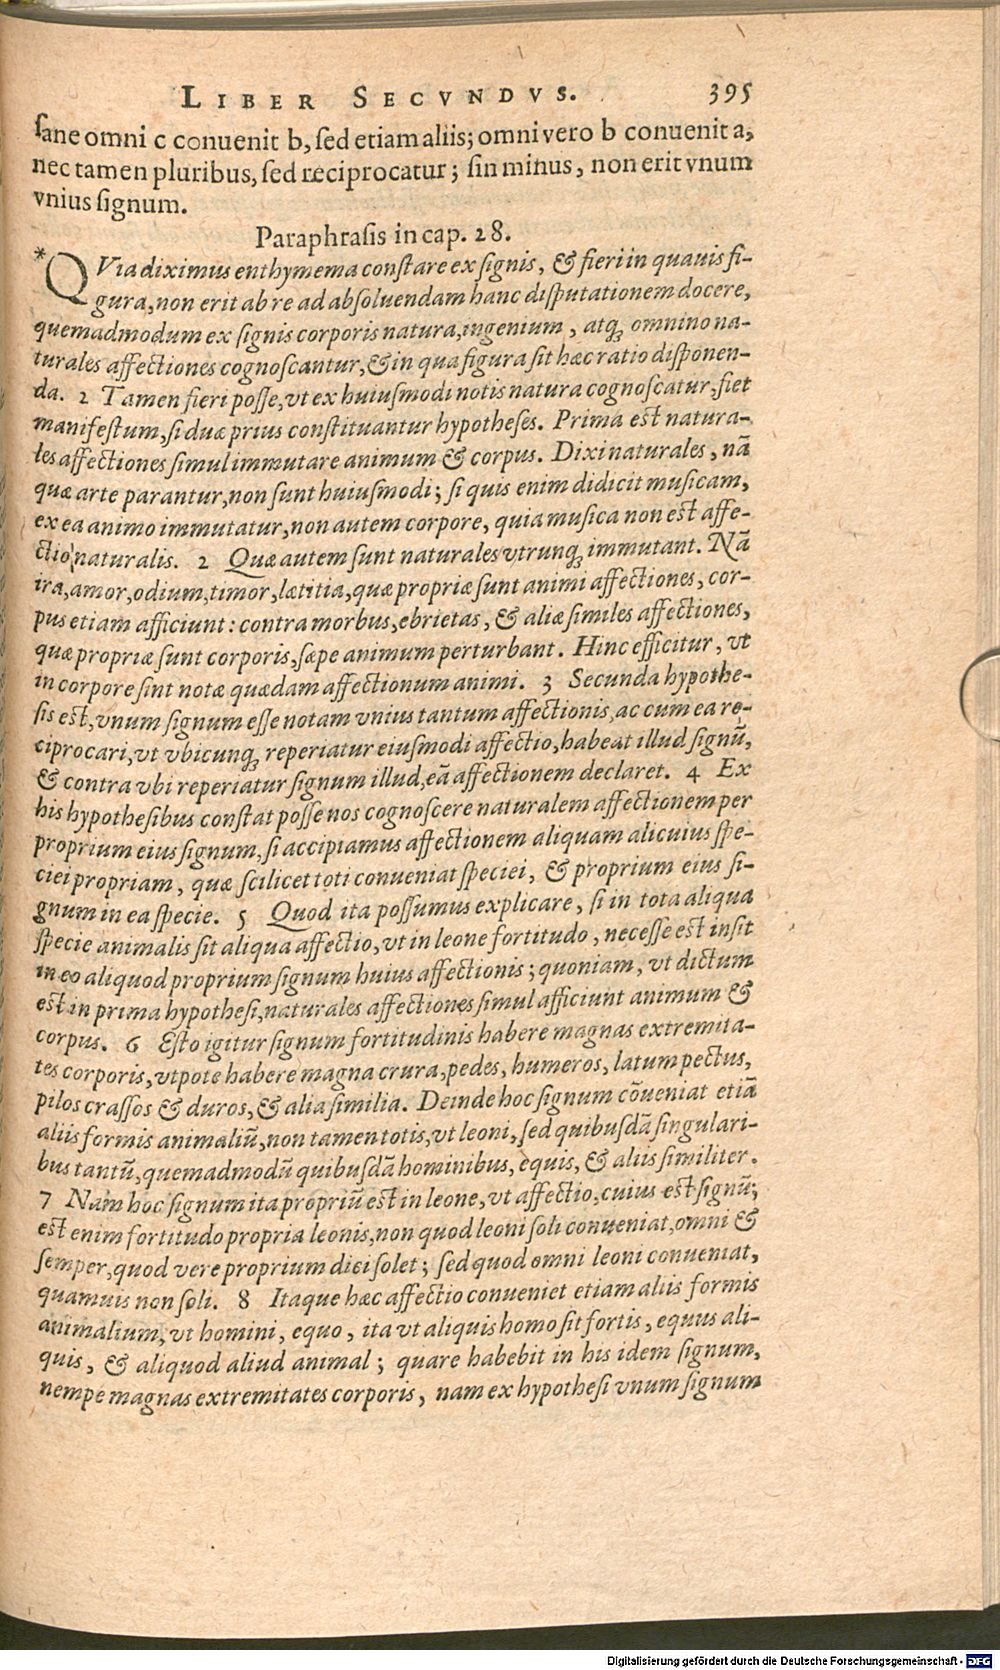 LIBER SECVNDVS. 395
ſane omni c conuenit b, ſed etiam aliis; omni vero b conuenit a,
nec tamen pluribus, ſed reciprocatur; ſin minus, non erit vnum
vnius ſignum.
Paraphraſis in cap. 28.
*QVia diximus enthymema conſtare ex ſignis, & fieri in quauis fi-
gura, non erit ab re ad abſoluendam hanc diſputationem docere,
quemadmodum ex ſignis corporis natura, ingenium, atq; omnino na-
turales affectiones cognoſcantur, & in qua figura ſit hæc ratio diſponen-
da. 2 Tamen fieri poſſe, vt ex huiuſmodi notis natura cognoſcatur, fiet
manifeſtum, ſi duæ prius conſtituantur hypotheſes. Prima eſt natura-
les affectiones ſimul immutare animum & corpus. Dixi naturales, nā
quæ arte parantur, non ſunt huiuſmodi; ſi quis enim didicit muſicam,
ex ea animo immutatur, non autem corpore, quia muſica non eſt affe-
ctio naturalis. 2 Quæ autem ſunt naturales vtrunq; immutant. Nā
ira, amor, odium, timor, lætitia, quæ propriæ ſunt animi affectiones, cor-
pus etiam afficiunt: contra morbus, ebrietas, & aliæ ſimiles affectiones,
quæ propriæ ſunt corporis, ſæpe animum perturbant. Hinc efficitur, vt
in corpore ſint notæ quædam affectionum animi. 3 Secunda hypothe-
ſis eſt, vnum ſignum eſſe notam vnius tantum affectionis, ac cum ea re-
ciprocari, vt vbicunq; reperiatur eiuſmodi affectio, habeat illud ſignū,
& contra vbi reperiatur ſignum illud, eā affectionem declaret. 4 Ex
his hypotheſibus conſtat poſſe nos cognoſcere naturalem affectionem per
proprium eius ſignum, ſi accipiamus affectionem aliquam alicuius ſpe-
ciei propriam, quæ ſcilicet toti conueniat ſpeciei, & proprium eius ſi-
gnum in ea ſpecie. 5 Quod ita poſſumus explicare, ſi in tota aliqua
ſpecie animalis ſit aliqua affectio, vt in leone fortitudo, neceſſe eſt inſit
in eo aliquod proprium ſignum huius affectionis; quoniam, vt dictum
eſt in prima hypotheſi, naturales affectiones ſimul afficiunt animum &
corpus. 6 Eſto igitur ſignum fortitudinis habere magnas extremita-
tes corporis, vtpote habere magna crura, pedes, humeros, latum pectus,
pilos craſſos & duros, & alia ſimilia. Deinde hoc ſignum cōueniat etiā
aliis formis animaliū, non tamen totis, vt leoni, ſed quibuſdā ſingulari-
bus tantū, quemadmodū quibuſdā hominibus, equis, & aliis ſimiliter.
7 Nam hoc ſignum ita propriū eſt in leone, vt affectio, cuius eſt ſignū;
eſt enim fortitudo propria leonis, non quod leoni ſoli conueniat, omni &
ſemper, quod vere proprium dici ſolet; ſed quod omni leoni conueniat,
quamuis non ſoli. 8 Itaque hæc affectio conueniet etiam aliis formis
animalium, vt homini, equo, ita vt aliquis homo ſit fortis, equus ali-
quis, & aliquod aliud animal; quare habebit in his idem ſignum,
nempe magnas extremitates corporis, nam ex hypotheſi vnum ſignum
Digitalisierung gefördert durch die Deutsche Forschungsgemeinschaft - DFG